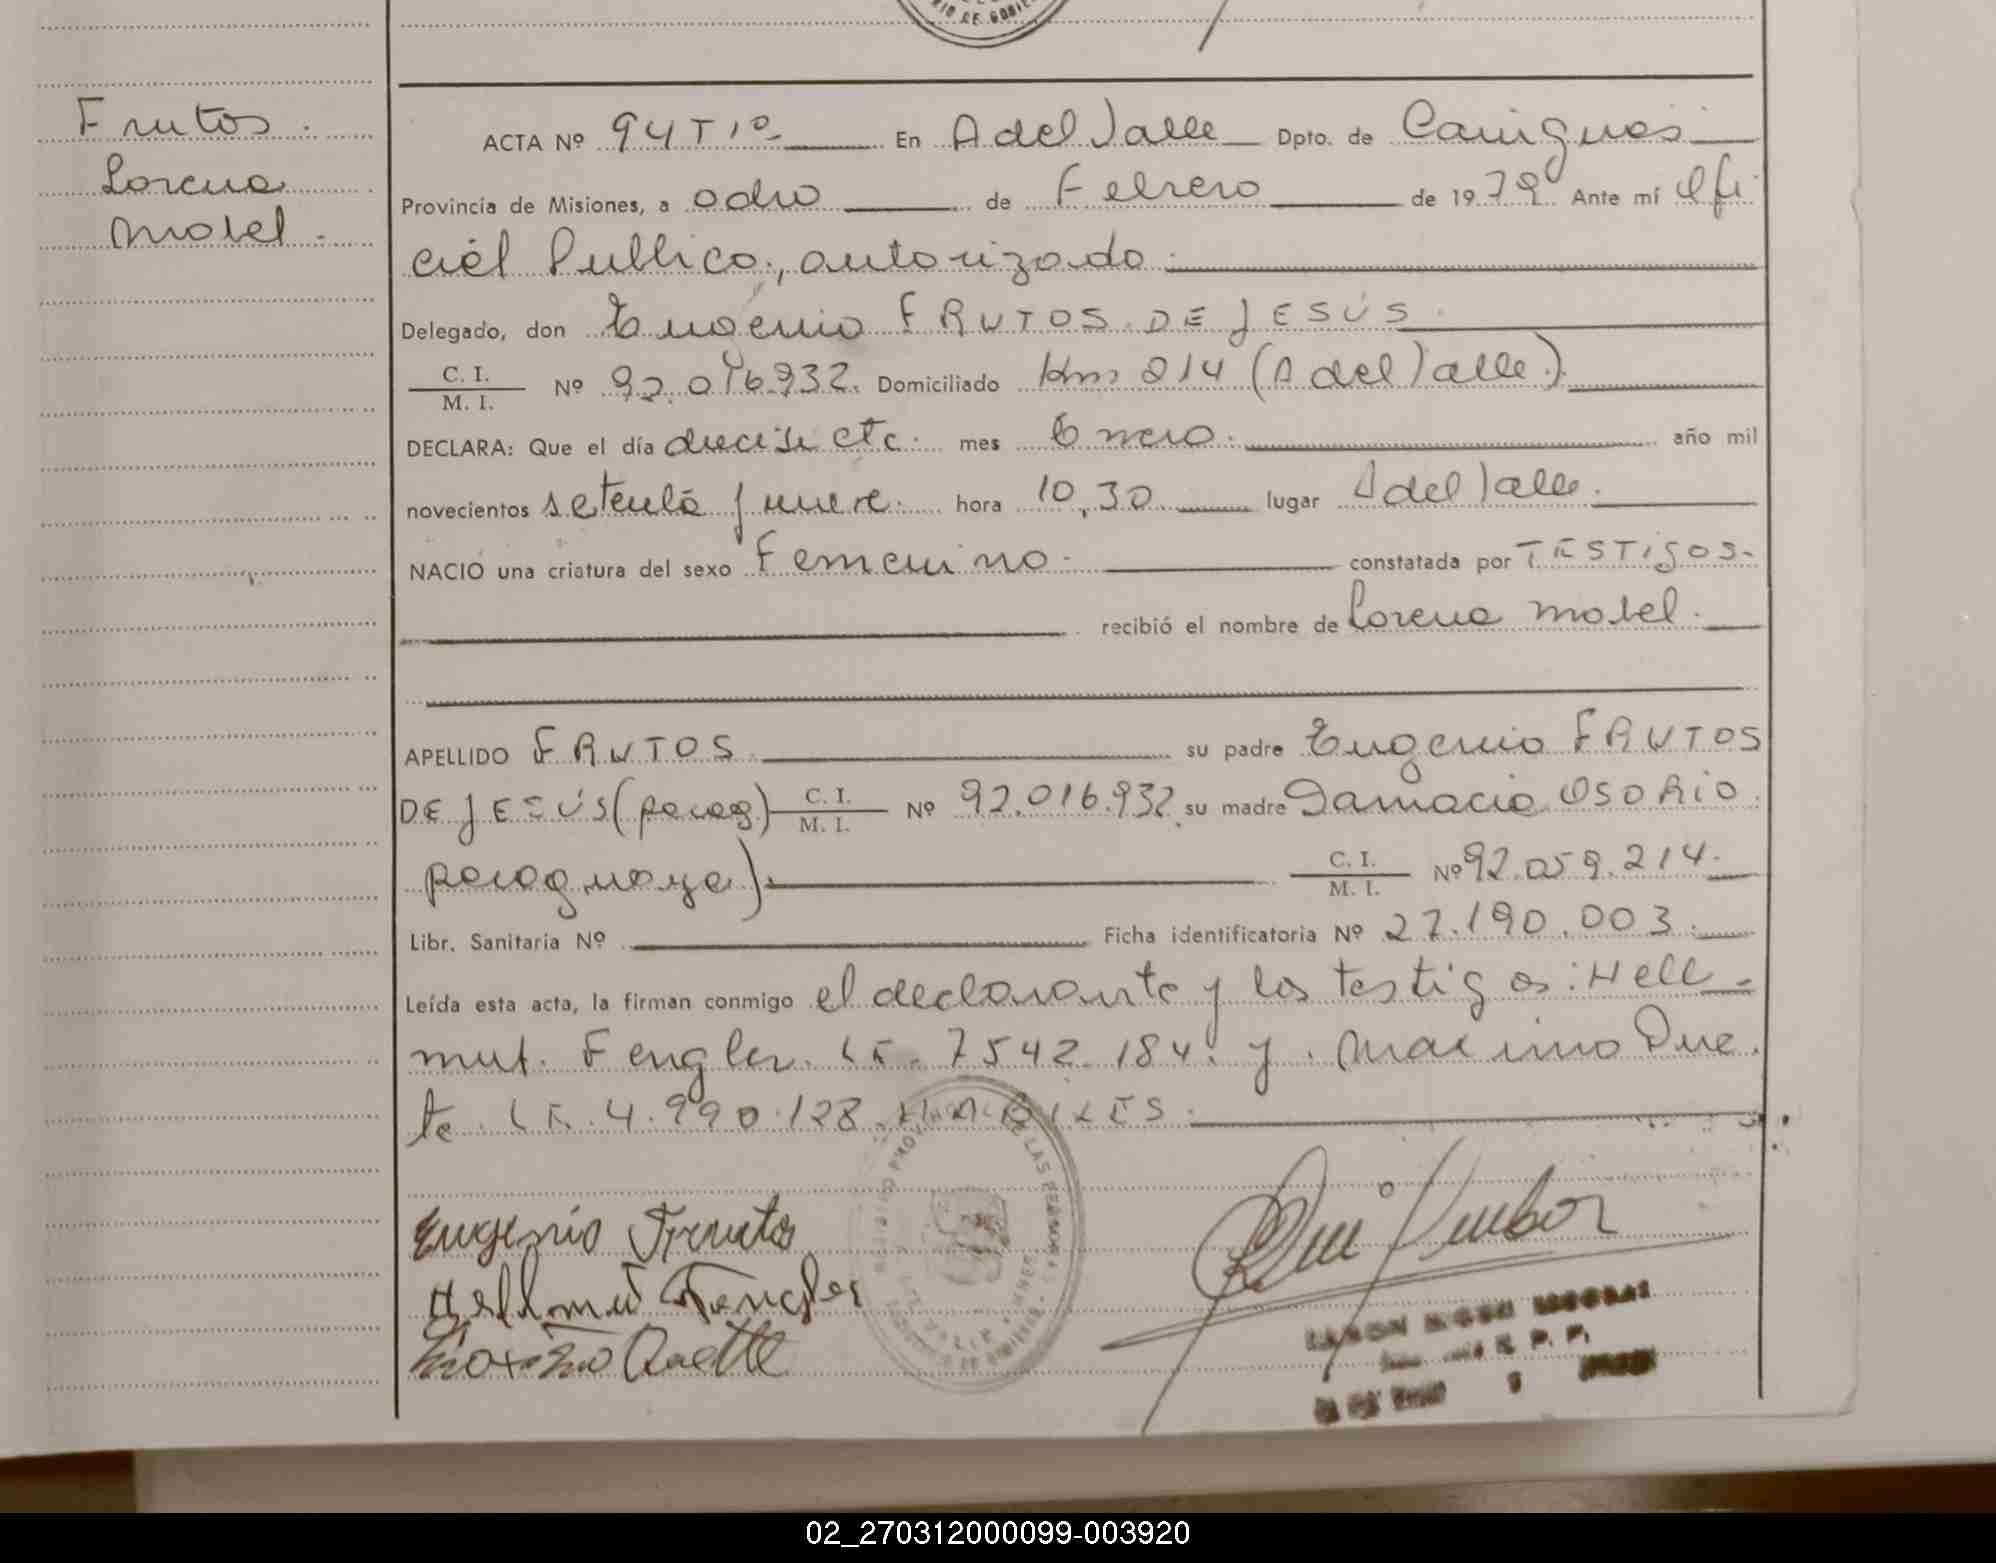 RIO DE GOBIE
Frutos.
Lorena
Mabel.
ACTA Nº 94 T 1º En A del Valle Dpto. de Cainguas
Provincia de Misiones, a ocho de Febrero de 1979 Ante mí Ofi
cial Publico, autorizado
Delegado, don Eugenio FRUTOS DE JESÚS
C. I.
M. I. Nº 92.016.932. Domiciliado Km 214 (A del Valle.)
DECLARA: Que el día diecisiete. mes Enero. año mil
novecientos setenta y nueve. hora 10,30 lugar A del Valle.
NACIO una criatura del sexo Femenino. constatada por TESTIGOS.
recibió el nombre de Lorena Mabel.
APELLIDO FRUTOS su padre Eugenio FRUTOS
DE JESÚS (parag) C. I. M. I. Nº 92.016.932 su madre Damacia OSORIO.
paraguaya). C. I. M. I. Nº 92.059.214.
Libr. Sanitaria Nº Ficha identificatoria Nº 27.190.003.
Leída esta acta, la firman conmigo el declarante y los testigos: Hell
mut. Fengler. LE. 7542.184. y. Maximo Due
te. LE. 4.990.128. HABILES.
Eugenio Frutos
Hellmut Fengler
Maximo Duette
DE LAS PERSONAS
02_270312000099-003920